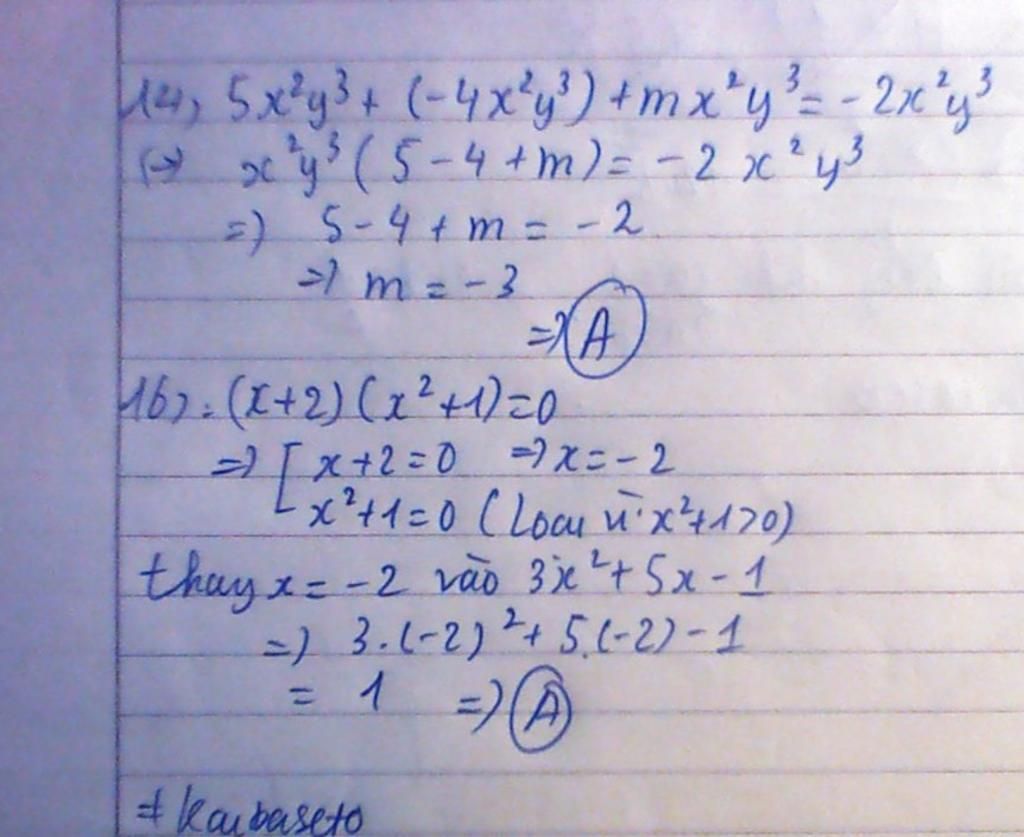 14, 5x²y³ + (-4x²y³) + mx²y³ = -2x²y³
(=) x²y³ (5 - 4 + m) = -2 x² y³
=) 5 - 4 + m = -2
=) m = -3
=) A
16) : (x+2) (x²+1) = 0
=) [ x+2 = 0 =) x = -2
x²+1 = 0 (Loại vì x²+1 > 0)
thay x = -2 vào 3x² + 5x - 1
=) 3.(-2)² + 5.(-2) - 1
= 1 =) A
# Kaibaseto